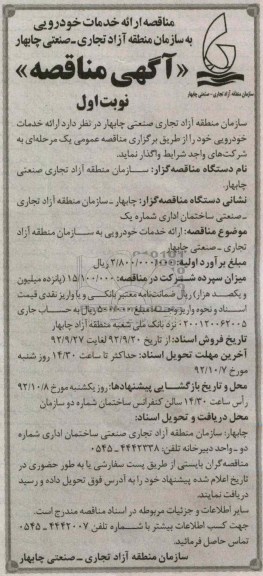 مناقصه ارائه خدمات خودرویی
به سازمان منطقه آزاد تجاری ـ صنعتی چابهار
سازمان منطقه آزاد تجاری - صنعتی چابهار
«آگهی مناقصه»
نوبت اول
سازمان منطقه آزاد تجاری صنعتی چابهار در نظر دارد ارائه خدمات
خودرویی خود را از طریق برگزاری مناقصه عمومی یک مرحله‌ای به
شرکت‌های واجد شرایط واگذار نماید.
نام دستگاه مناقصه‌گزار: سازمان منطقه آزاد تجاری صنعتی
چابهار.
نشانی دستگاه مناقصه‌گزار: چابهار ـ سازمان منطقه آزاد تجاری
ـ صنعتی ساختمان اداری شماره یک
موضوع مناقصه: ارائه خدمات خودرویی به سازمان منطقه آزاد
تجاری ـ صنعتی چابهار
مبلغ برآورد اولیه: ریال
میزان سپرده شرکت در مناقصه: ۱۵/۱۰۰/۰۰۰ (پانزده میلیون
و یکصد هزار) ریال ضمانت‌نامه معتبر بانکی و یا واریز نقدی قیمت
اسناد و نحوه واریز وجه: مبلغ ریال به حساب جاری
۲۰۰۱۲۰۰۶۲۰۰۵ نزد بانک ملی شعبه منطقه آزاد چابهار
تاریخ فروش اسناد: از تاریخ ۹۲/۹/۲۰ لغایت ۹۲/۹/۲۷
آخرین مهلت تحویل اسناد: حداکثر تا ساعت ۱۴/۳۰ روز شنبه
مورخ ۹۲/۱۰/۷
محل و تاریخ بازگشایی پیشنهادها: روز یکشنبه مورخ ۹۲/۱۰/۸
رأس ساعت ۱۴/۳۰ سالن کنفرانس ساختمان شماره دو سازمان
محل دریافت و تحویل اسناد:
چابهار، سازمان منطقه آزاد تجاری صنعتی ساختمان اداری شماره
دو ـ واحد دبیرخانه تلفن: ۴۴۴۲۳۳۸ ـ ۰۵۴۵
مناقصه‌گران بایستی از طریق پست سفارشی یا به طور حضوری در
تاریخ اعلام شده پیشنهاد خود را به آدرس فوق تحویل داده و رسید
دریافت نمایند.
سایر اطلاعات و جزئیات مربوطه در اسناد مناقصه مندرج است.
جهت کسب اطلاعات بیشتر با شماره تلفن ۴۴۴۲۰۰۷ ـ ۰۵۴۵
تماس حاصل فرمائید.
سازمان منطقه آزاد تجاری ـ صنعتی چابهار